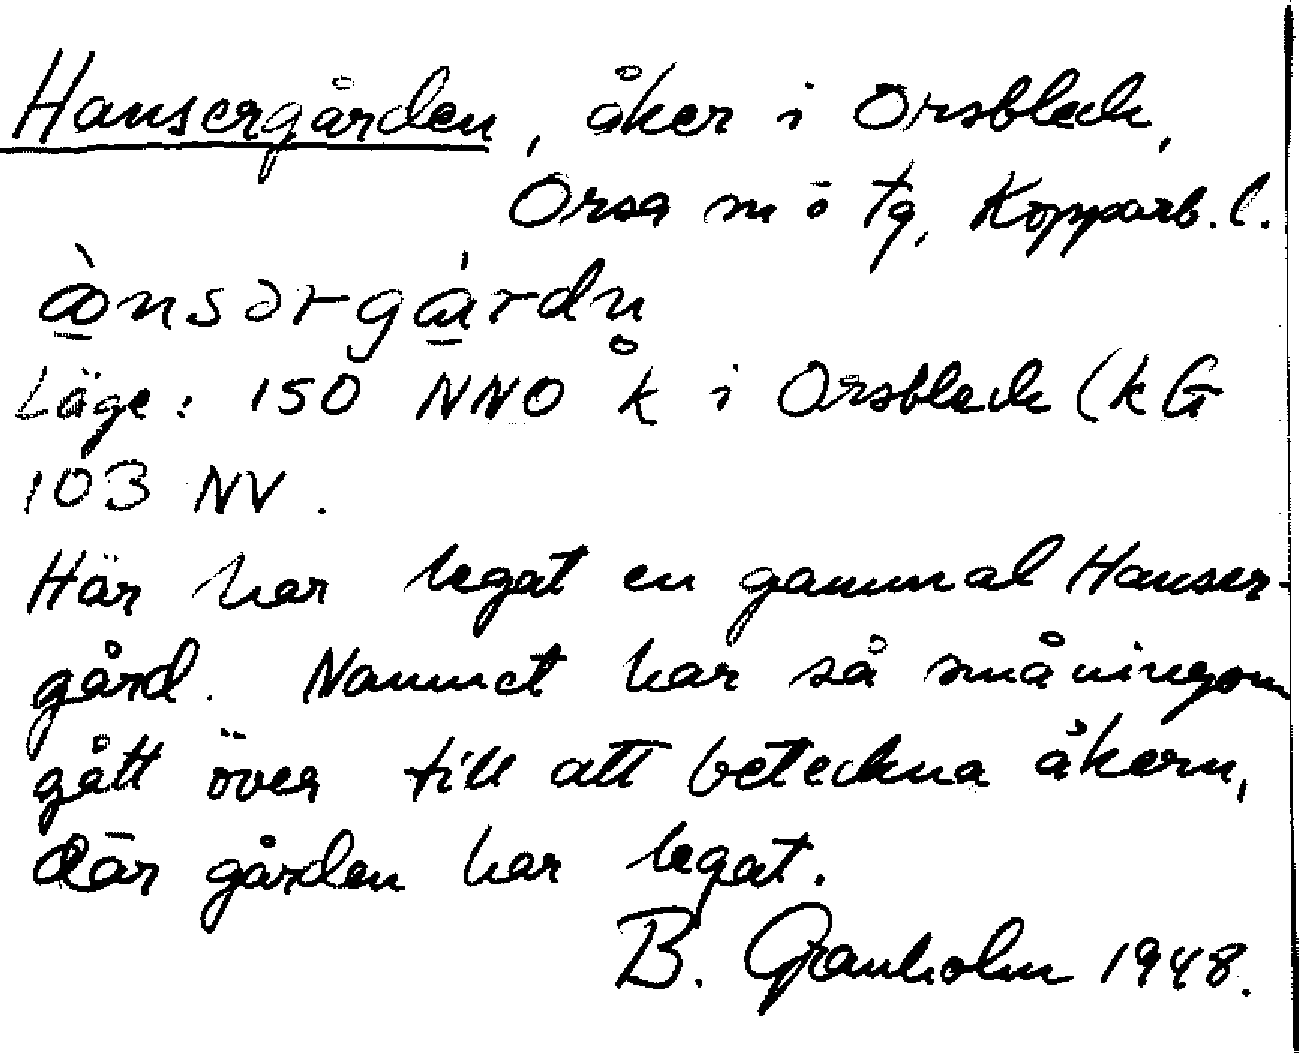 Hansergården, åker i Orsbleck,
Orsa sn ö tg, Kopparb. l.
ànsərgárdn̥
Läge: 150 NNO k i Orsbleck (k G
103 NV.
Här har legat en gammal Hanser-
gård. Namnet har så småningom
gått över till att beteckna åkern,
där gården har legat.
B. Granholm 1948.